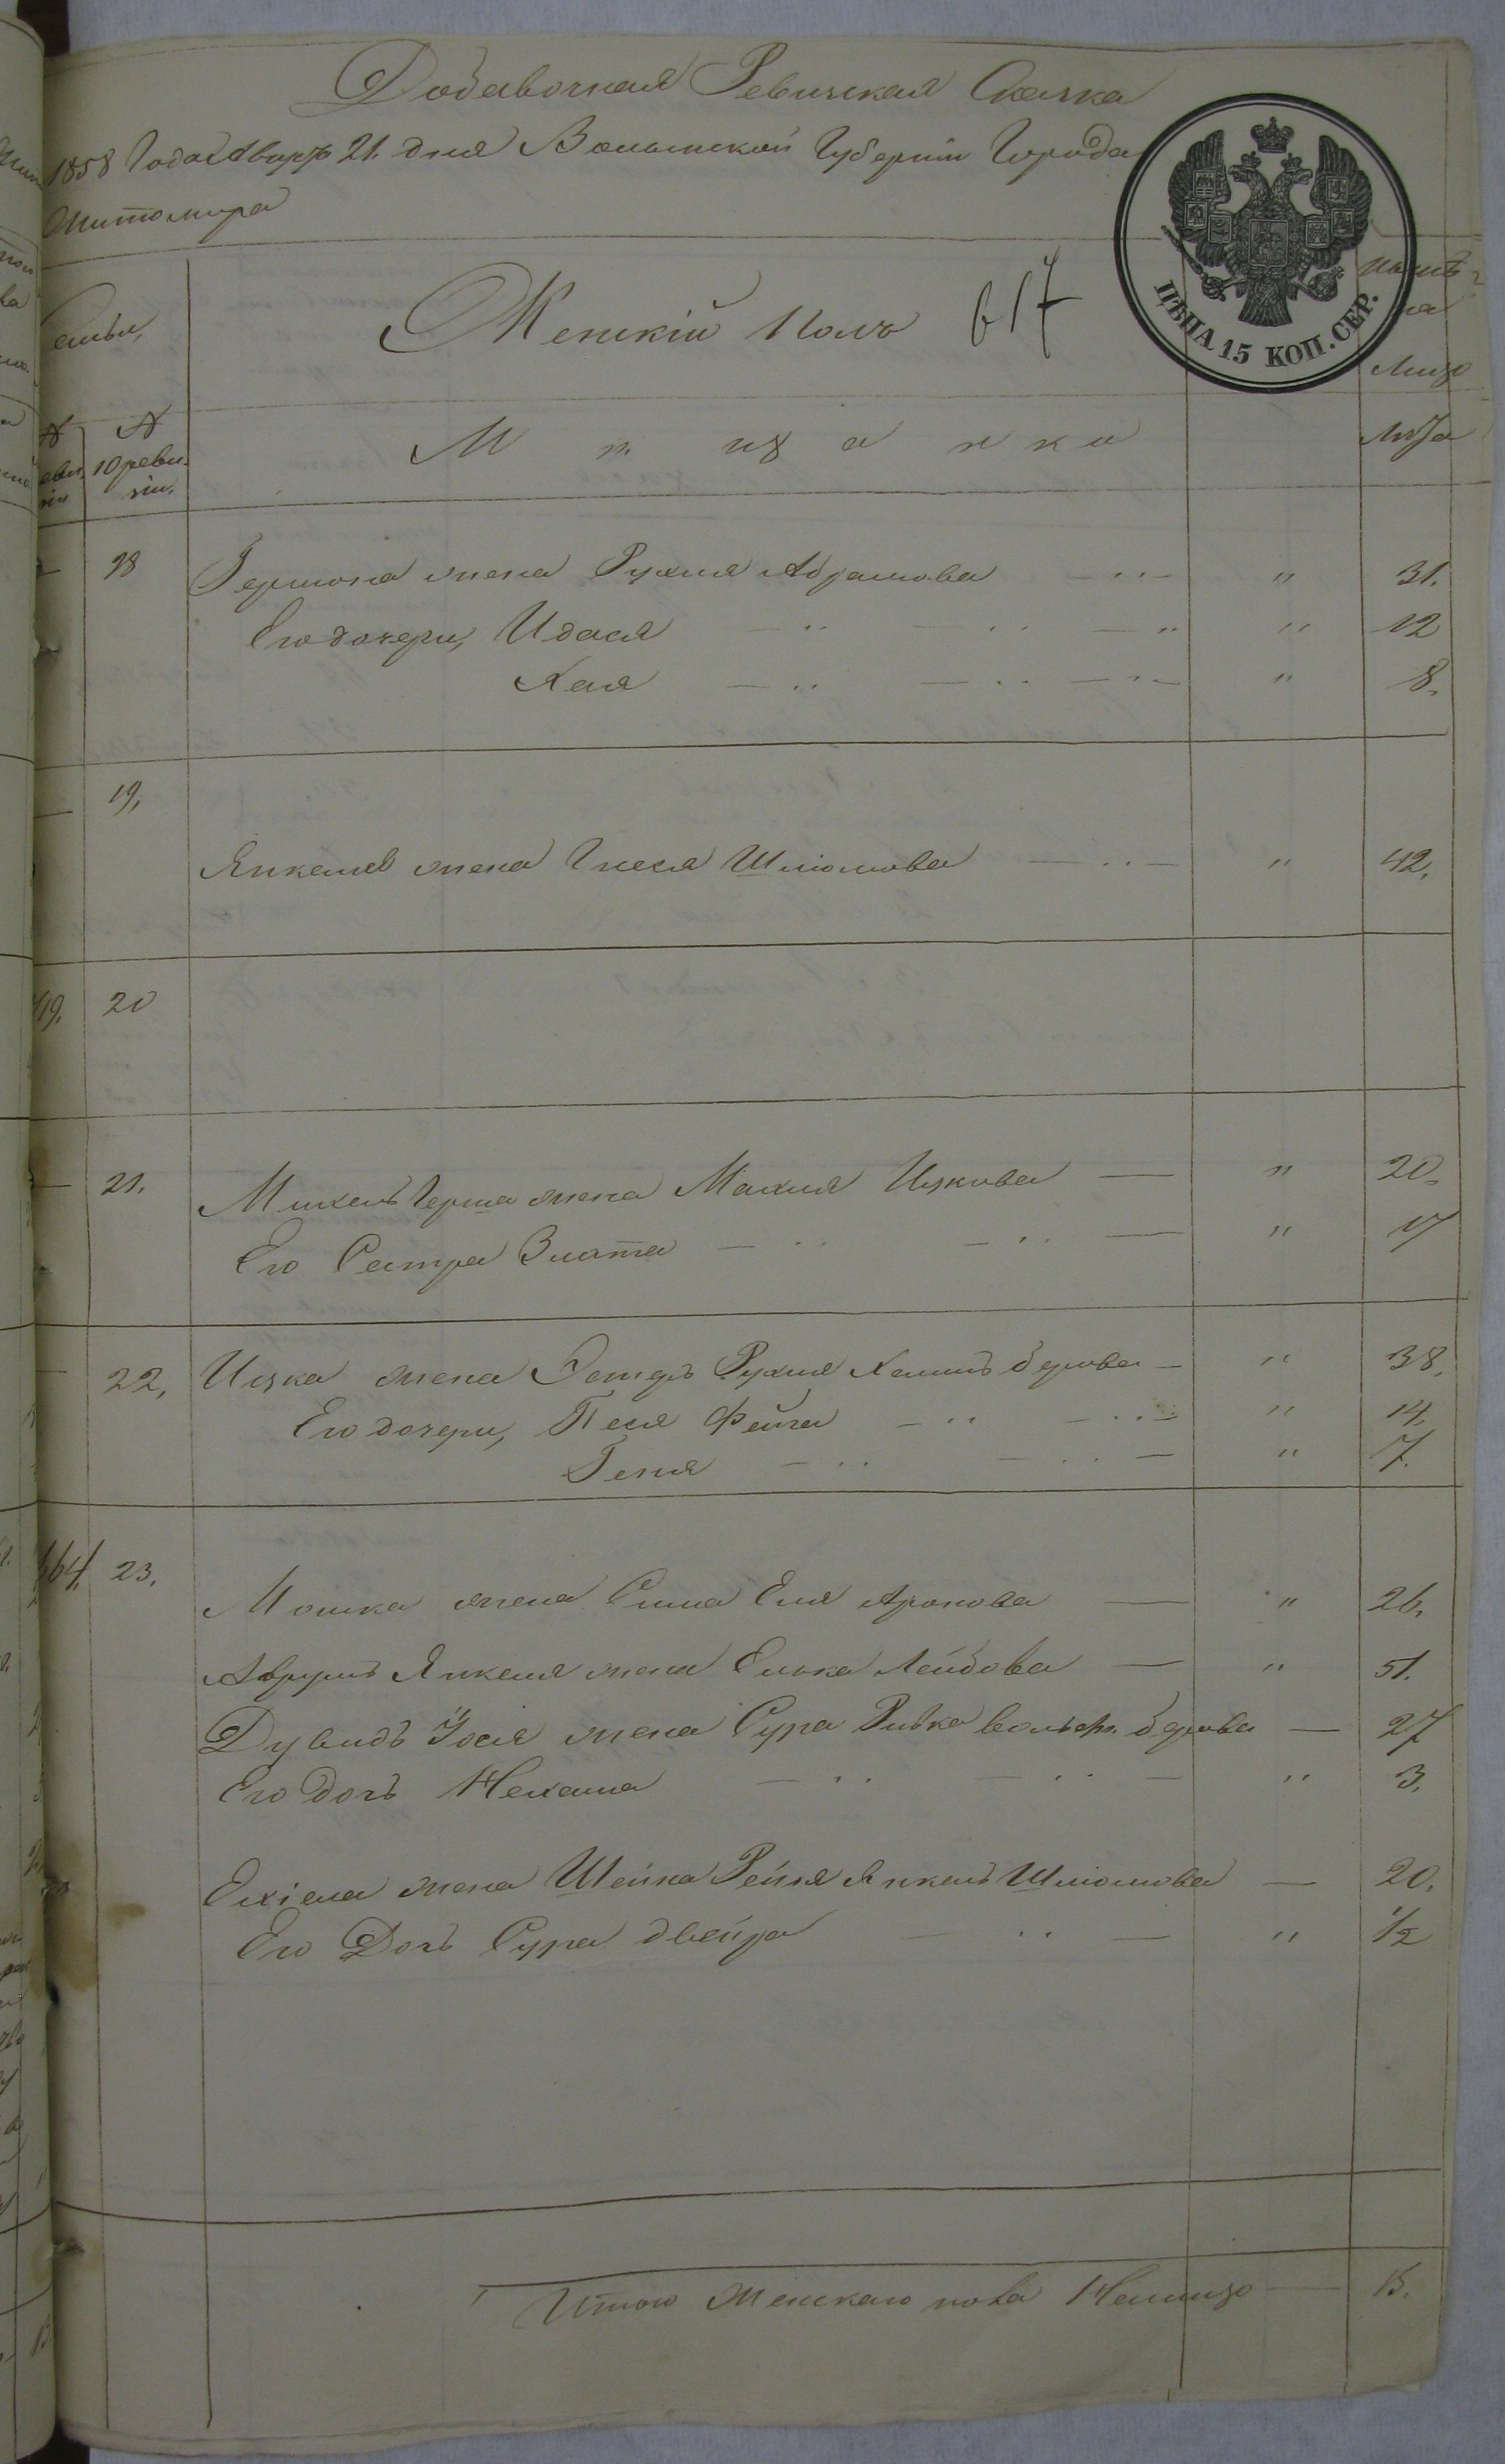 Добавочная Ревизская Сказка
1858 Года Января 21. дня Волынской Губернии Города
Житомира
Женскій Полъ 617
ЦѢНА 15 КОП. СЕР.
на
Лицо
Лѣта
М ѣ щ а н к и
№ 10 ревизіи.
18 Гершона жена Рухля Абрамова — " 31.
Его дочери, Идася — " 12
Хая — " 8.
19, Янкеля жена Гнеся Шліомова — " 42,
19. 20
21. Михель Герша жена Малия Ицкова — " 20.
Его Сестра Злата — " 17
22, Ицка жена Эстеръ Рухля Хаимъ берова — " 38.
Его дочери, Песя Фейга — " 14.
Геня — " 7.
64. 23. Мошка жена Сима Еня Аронова — " 26.
Аврумъ Янкеля жена Елька Лейбова — " 51.
Дувидъ Іося жена Сура Ривка вольф. берова — 27
Его дочь Нехама — " 3.
Ехіела жена Шейна Рейзя Янкель Шліомова — 20.
Его Дочь Сура двейра — " ½
Итого женскаго пола Налицо — 15.